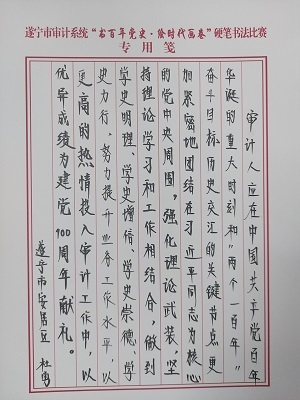 遂宁市审计系统“书百年党史·绘时代画卷”硬笔书法比赛
专用笺
审计人应在中国共产党百年
华诞的重大时刻和“两个一百年”
奋斗目标历史交汇的关键节点更
加紧密地团结在习近平同志为核心
的党中央周围，强化理论武装，坚
持理论学习和工作相结合，做到
学史明理、学史增信、学史崇德、学
史力行。努力提升业务工作水平，以
更高的热情投入审计工作中，以
优异成绩为建党100周年献礼。
遂宁市安居区 杜勇